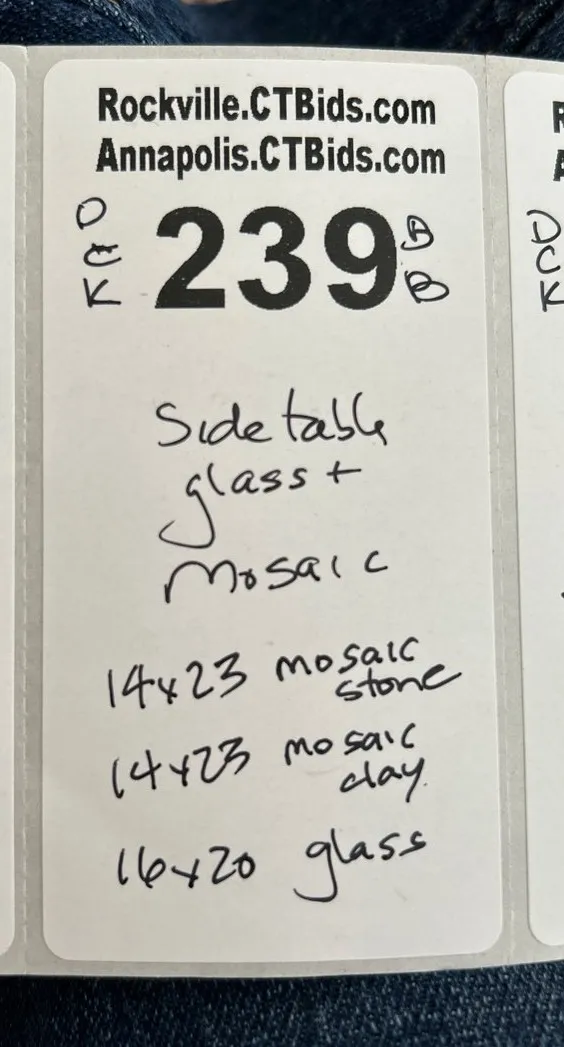 Rockville.CTBids.com
Annapolis.CTBids.com
D
C
K
239
B
B
Side table
glass +
Mosaic
14x23 mosaic
stone
14x23 mosaic
clay.
16x20 glass
R
A
D
C
K